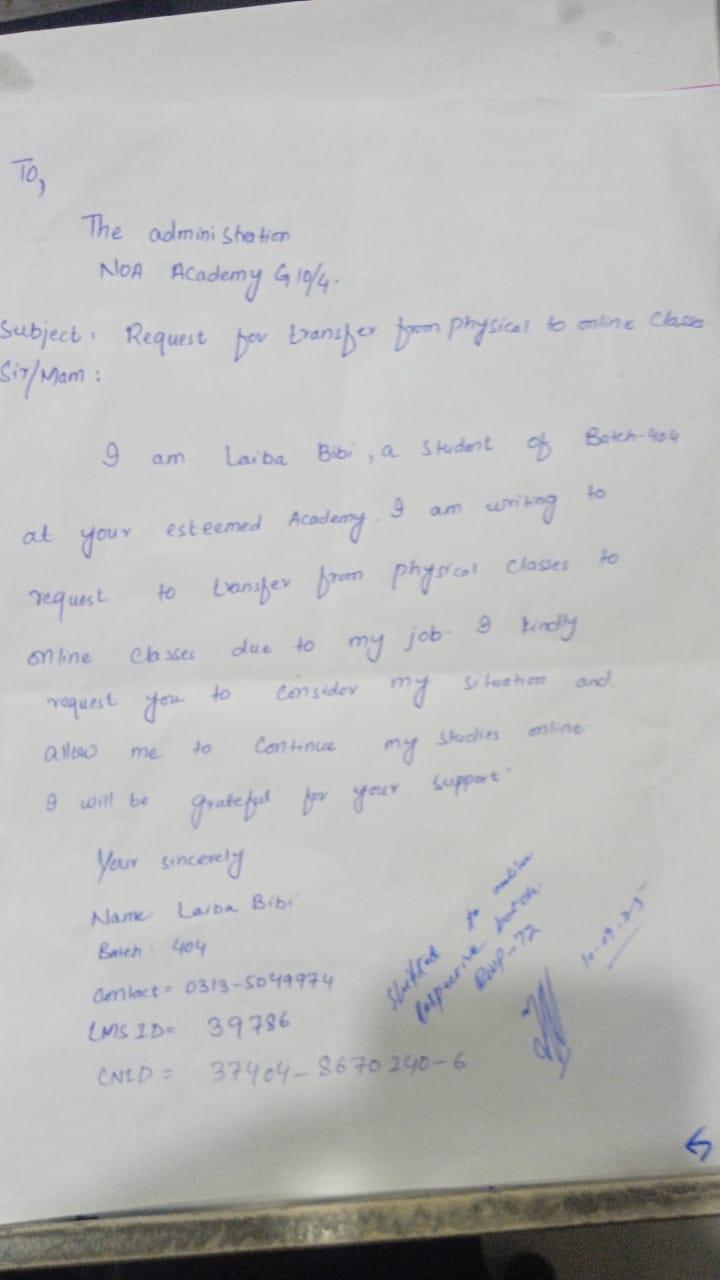 To,
The administration
NOA Academy G10/4.
Subject: Request for transfer from physical to online Classes
Sir/Mam:
I am Laiba Bibi, a Student of Batch-404
at your esteemed Academy. I am writing to
request to transfer from physical classes to
online classes due to my job. I kindly
request you to consider my situation and
allow me to Continue my studies online.
I will be grateful for your support.
Your sincerely
Name: Laiba Bibi
Batch: 404
Contact = 0313-5049974
LMS ID= 39786
CNID = 37404-8670240-6
Shifted to online
batch